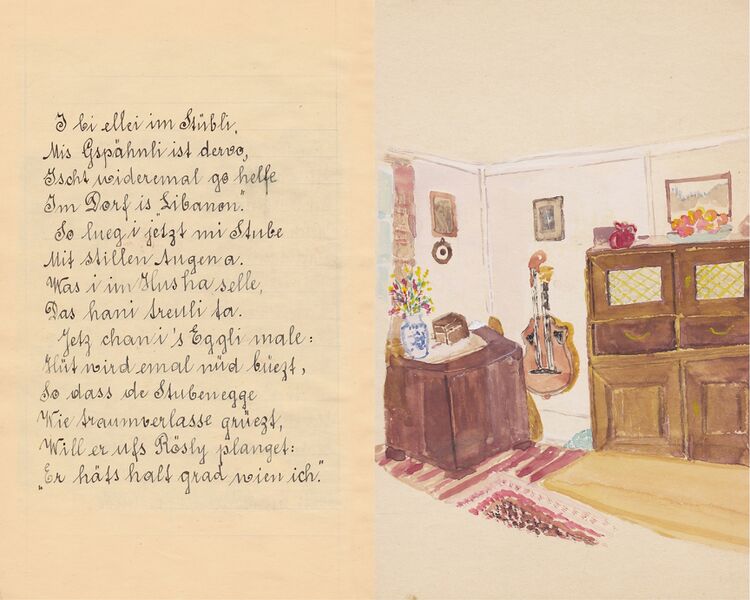 I bi ellei im Stübli,
Mis Gspähnli ist dervo,
Ischt wideremal go helfe
Im Dorf is „Libanon“.
So lueg i jetzt mi Stube
Mit stillen Augen a.
Was i im Hus ha selle,
Das hani treuli ta.
Jetz chan i's Eggli male:
Hüt wird emal nüd büezt,
So dass de Stubenegge
Wie traumverlasse grüezt,
Will er ufs Rösly planget:
„Er häts halt grad wien ich.“